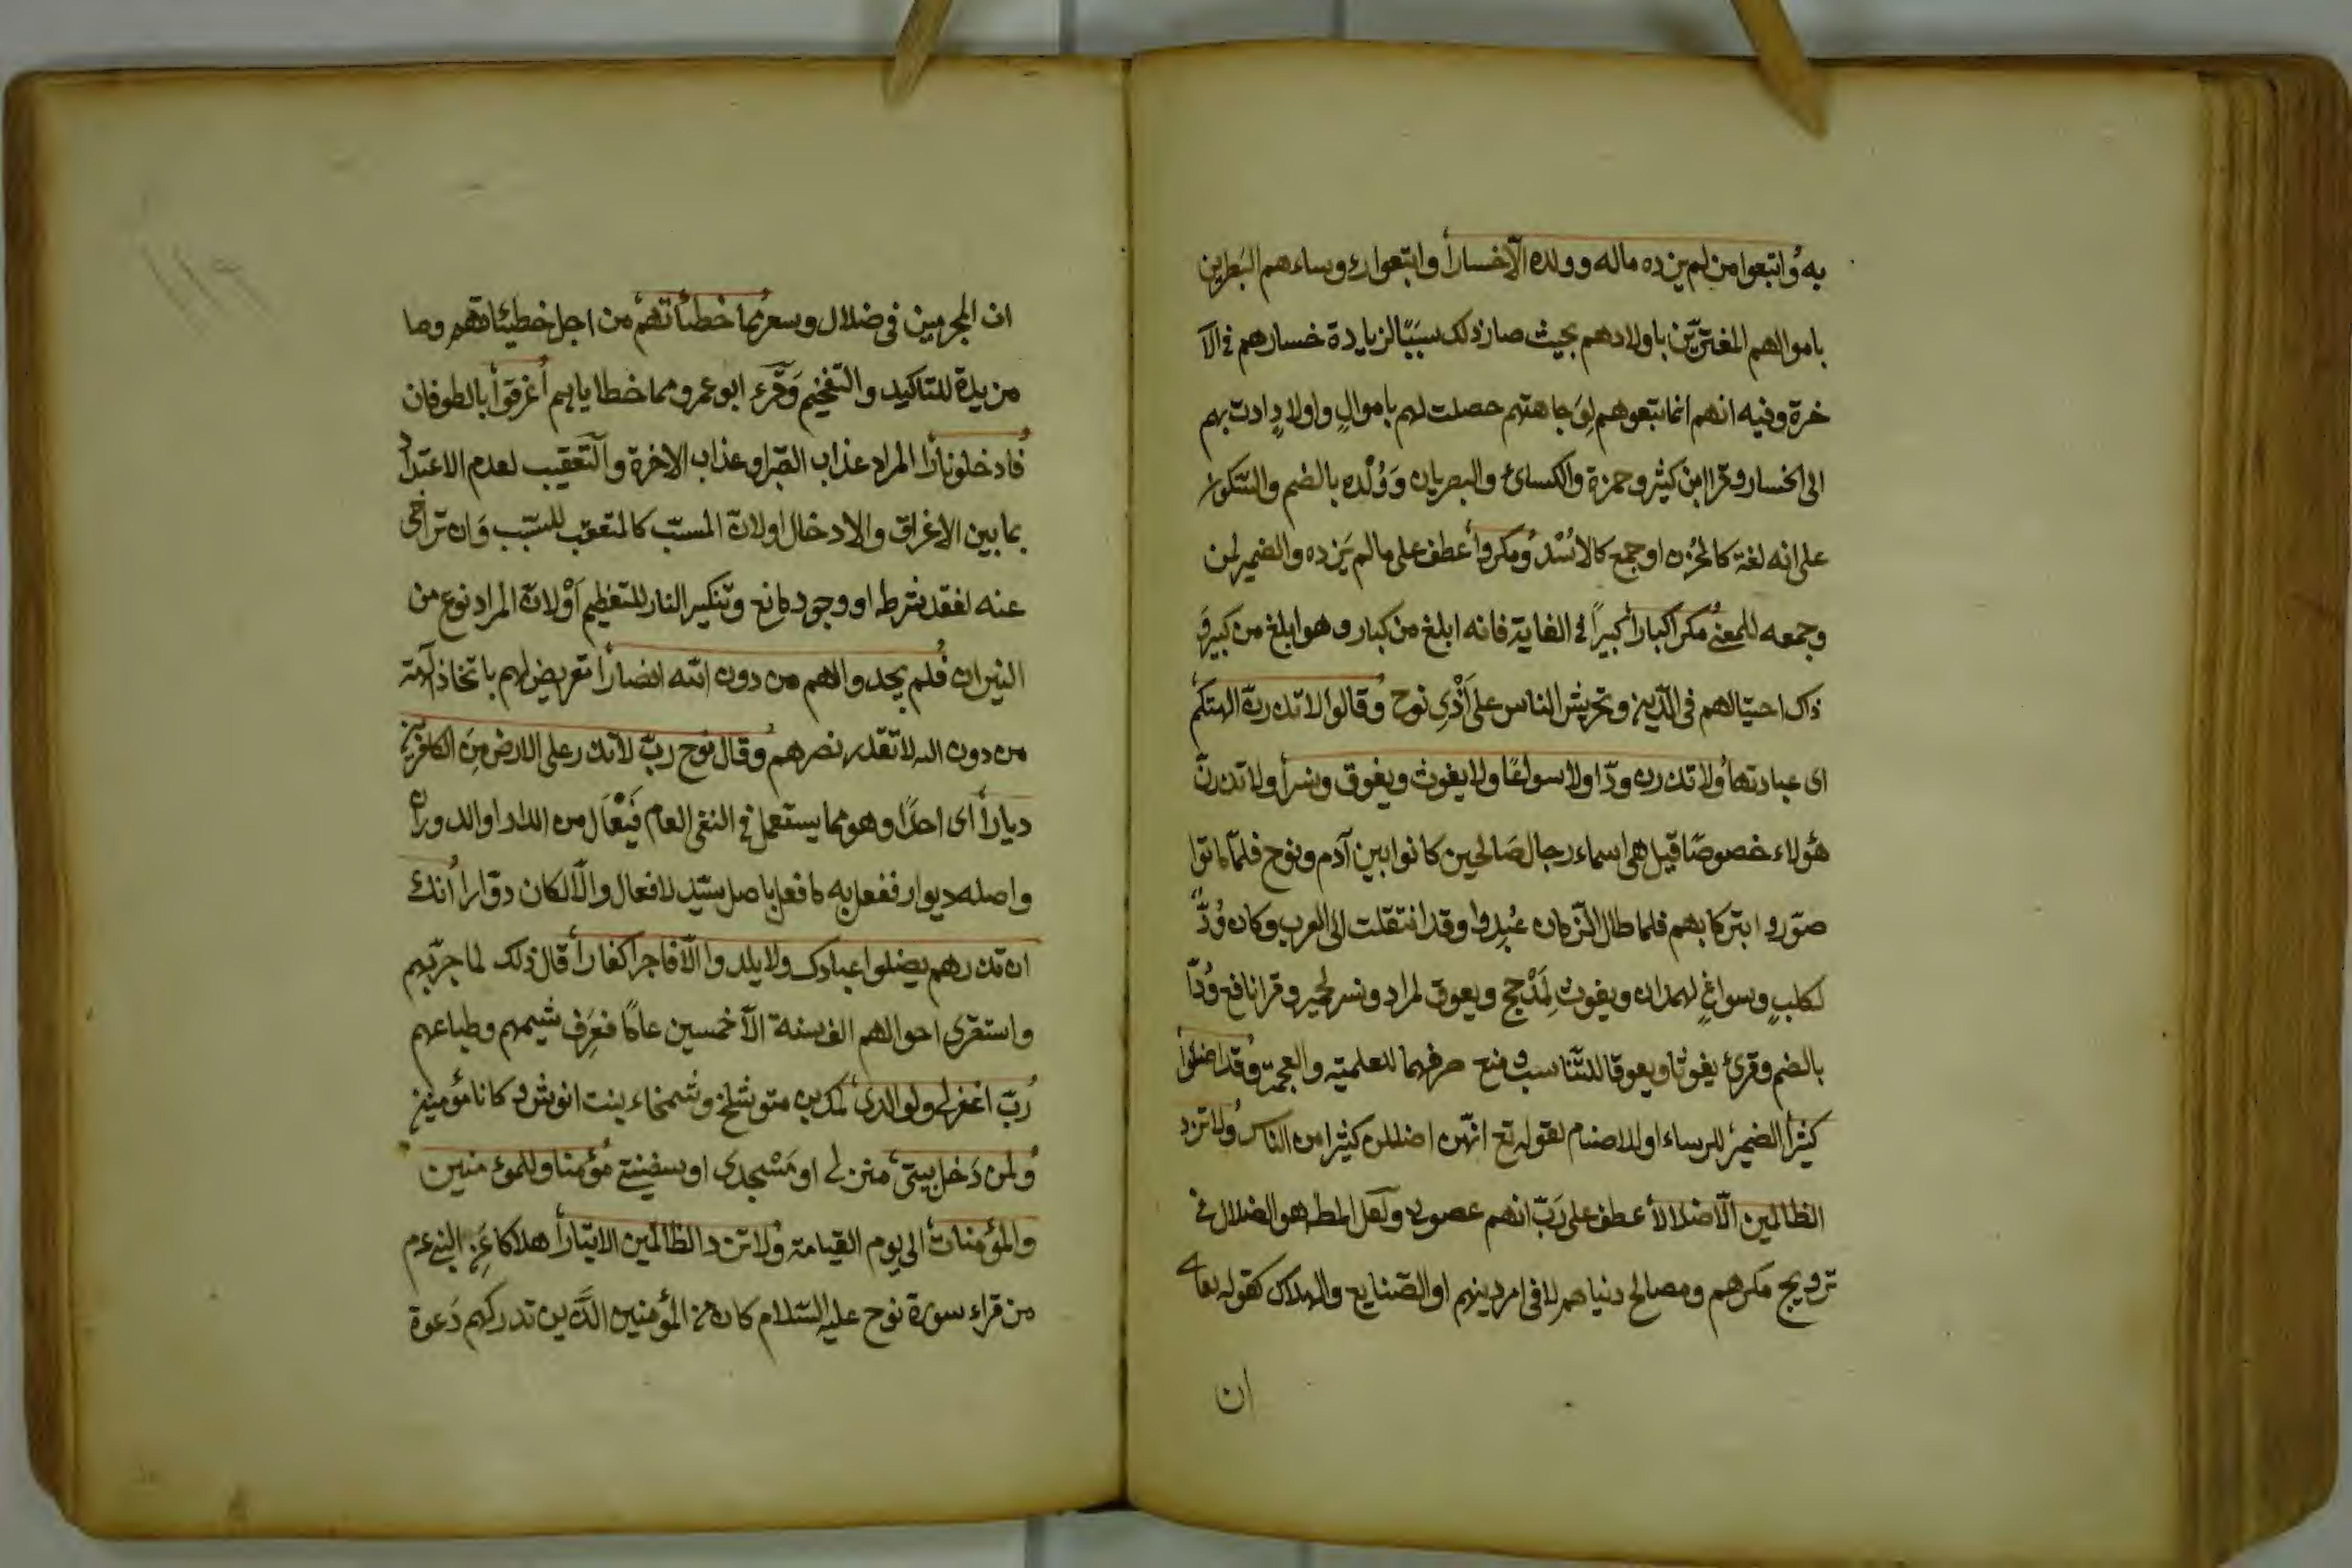 به واتبعوا من لم يزده ماله وولده الّا خسارا واتبعوا رؤساءهم البَطرين
باموالهم المغترّين باولادهم بحيث صار ذلك سَبَبًا لزيادة خسارهم في الآ
خرة وفيه انهم انما تبعوهم لِوَجاهتهم حصلت لهم باموالٍ واولادٍ ادت بهم
الى الخسار وقرا ابن كثير وحمزة والكسائ والبصريان وَوُلْده بالضم والسّكون
على انه لغة كالحُزن او جمع كالاُسْد ومكروا عطف على ما لم يَزده والضمير لمن
وجمعه للمعنى مكرا كبارا كبيرًا في الغاية فانه ابلغ من كبار وهو ابلغ من كبير وَ
ذاك احتيالهم في الدّين وتحريش الناس على اَذْىِ نوح وقالوا لا تذرنّ الهتكم
اى عبادتها ولا تذرن ودّا ولا سواعًا ولا يغوث ويعوق ونسرا ولا تذرنّ
هؤلاء خصوصًا قيل هى اسماء رجال صَالحين كانوا بين آدم ونوح فلمّا ماتوا
صوّروا تبركا بهم فلما طال الزّمان عُبِدوا وقد انتقلت الى العرب وكان وُدّ
لكلبٍ وسواغٍ لهمدان ويغوث لمِذْحج ويعوق لمراد ونسر لحمير وقرا نافع وُدّا
بالضم وقرئ يغوثا ويعوقا للتّناسب ومنع صرفهما للعلمية والعجمة وقد اضلوا
كثيرا الضمير للرساء او للاصنام لقوله تع انّهن اضللن كثيرا من الناس ولا تزد
الظالمين الّا ضلالا عطف على رَبّ انهم عصونى ولعل المط هو الضلال في
ترويج مكرهم ومصالح دنياهم لا فى امر دينهم او الضّيايع والهلاك كقوله تعالى
ان
ان المجرمين في ضلال وسعر مما خطيأتهم من اجل خطيئاتهم وما
مزيدة للتاكيد والتفخيم وَقَرء ابو عمرو مما خطاياهم اُغرقوا بالطوفان
فادخلوا نارًا المراد عذاب القبر او عذاب الاخرة والتّعقيب لعدم الاعتداد
بما بين الاغراق والادخال او لانّ المسبّب كالمتعقب للسبّب وَان تراخى
عنه لفقد شرط او وجود مانع وتنكير النار للتعظيم اَوْ لانّ المراد نوع من
النيران فلم يجدوا لهم من دون الله انصارا تعريض لهم باتخاذ آلهة
من دون الله لا تقدر نصرهم وقال نوح ربّ لا تذر على الارض مِن الكافرين
ديارا اى احدًا وهو مما يستعمل في النفى العام فَيْعَال من الدار او الدوران
واصله ديوار ففعل به ما فعل باصل سيّد لا فعال والّا لكان دوّارا انك
ان تذرهم يضلوا عبادك ولا يلدوا الّا فاجرا كفارا قال ذلك لما جرّبهم
واستقرى احوالهم الف سنة الّا خمسين عامًا فعَرَف شيمهم وطباعهم
رَبّ اغفر لى ولوالدى لمك بن متوشلخ وشمخاء بنت انوش وكانا مؤمنين
ولمن دَخل بيتى منزلى او مَسْجدى او سفينتى مؤمنا وللمؤمنين
والمؤمنات الى يوم القيامة ولا تزد الظالمين الا تبارا هلاكا عَنِ النبى عم
من قراء سورة نوح عليه السّلام كان من المؤمنين الذّين تدركهم دَعوة